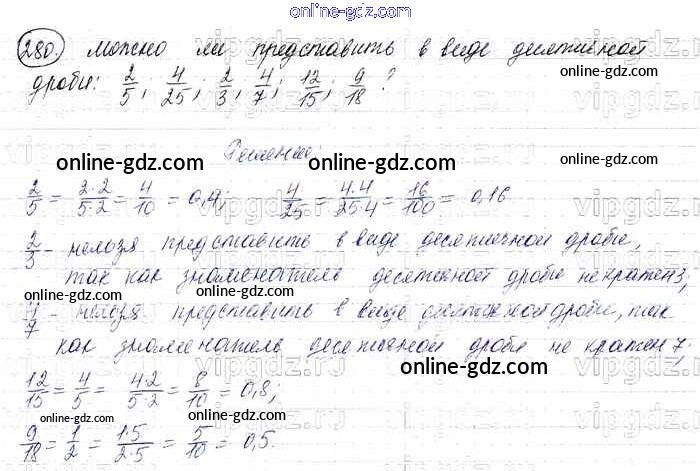 280. Можно ли представить в виде десятичной
дроби: 2/5; 4/25; 2/3; 4/7; 12/15; 9/18?
Решение:
2/5 = 2·2/5·2 = 4/10 = 0,4; 4/25 = 4·4/25·4 = 16/100 = 0,16
2/3 - нельзя представить в виде десятичной дроби,
так как знаменатель десятичной дроби не кратен 3;
4/7 - нельзя представить в виде десятичной дроби, так
как знаменатель десятичной дроби не кратен 7;
12/15 = 4/5 = 4·2/5·2 = 8/10 = 0,8;
9/18 = 1/2 = 1·5/2·5 = 5/10 = 0,5.
online-gdz.com
online-gdz.com
online-gdz.com
online-gdz.com
online-gdz.com
online-gdz.com
online-gdz.com
online-gdz.com
online-gdz.com
online-gdz.com
online-gdz.com
vipgdz.ru